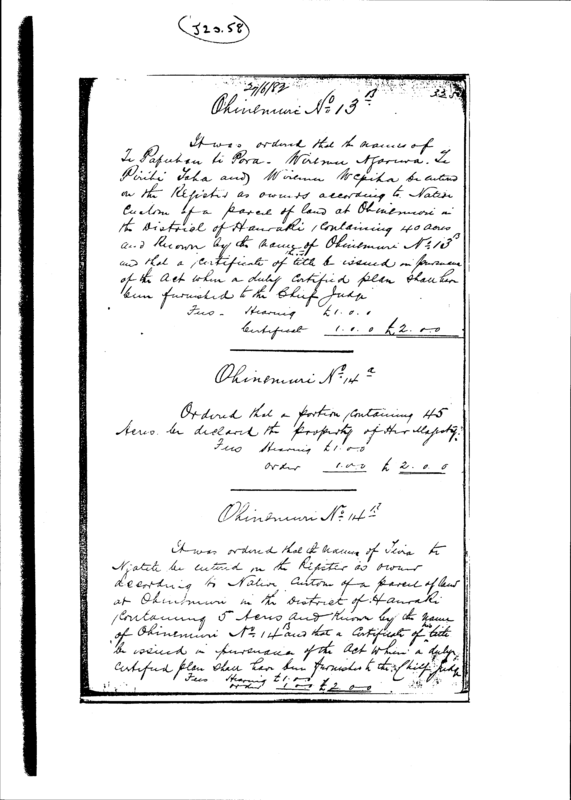 J20.58
27/6/82
Ohinemuri No 13 B
It was ordered that the names of
Te Pora - Wiremu Te
Piriti Taha and Wiremu be entered
on the Register as owners according to Native
Custom of a parcel of land at Ohinemuri in
the District of Hauraki, containing 40 acres
and known by the name of Ohinemuri No 13 B
and that a certificate of title be issued in pursuance
of the Act when a duly certified plan shall have
been furnished to the Chief Judge
Fees - Hearing £1.0.0
Certificate 1.0.0 £2.0.0
Ohinemuri No 14 a
Ordered that a portion, containing 45
Acres be declared the property of Her Majesty.
Fees Hearing £1.0.0
order 1.0.0 £ 2.0.0
Ohinemuri No 14 B
It was ordered that the name of te
be entered on the Register as owner
according to Native Custom of a parcel of land
at Ohinemuri in the District of Hauraki
containing 5 Acres and known by the name
of Ohinemuri No 14 B and that a Certificate of title
be issued in pursuance of the Act when a duly
certified plan shall have been furnished to the Chief Judge
Fees Hearing £1.0.0
order 1.0.0 £2.0.0